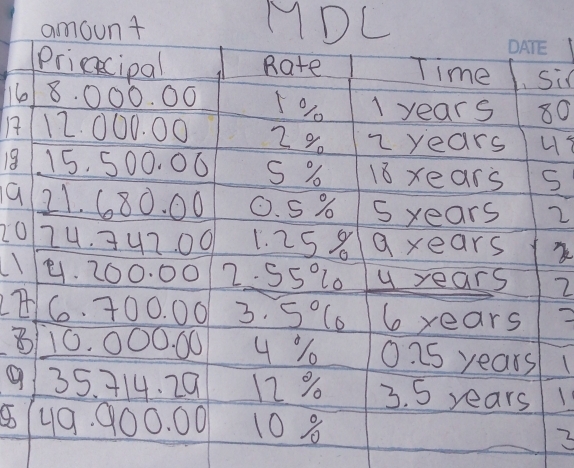 MDL
amount
DATE
Priccipal Rate Time
16 8.000.00 1% 1 years 80
17 12.000.00 2% 2 years 48
18 15.500.00 5% 18 years 5
19 21.680.00 0.5% 5 years 2
20 24.742.00 1.25% 9 years
4.200.00 2.55% 4 years 2
6.700.00 3.5% 6 years
8 10.000.00 4% 0.25 years 1
9 35.714.29 12% 3.5 years 1
49.900.00 10% 3